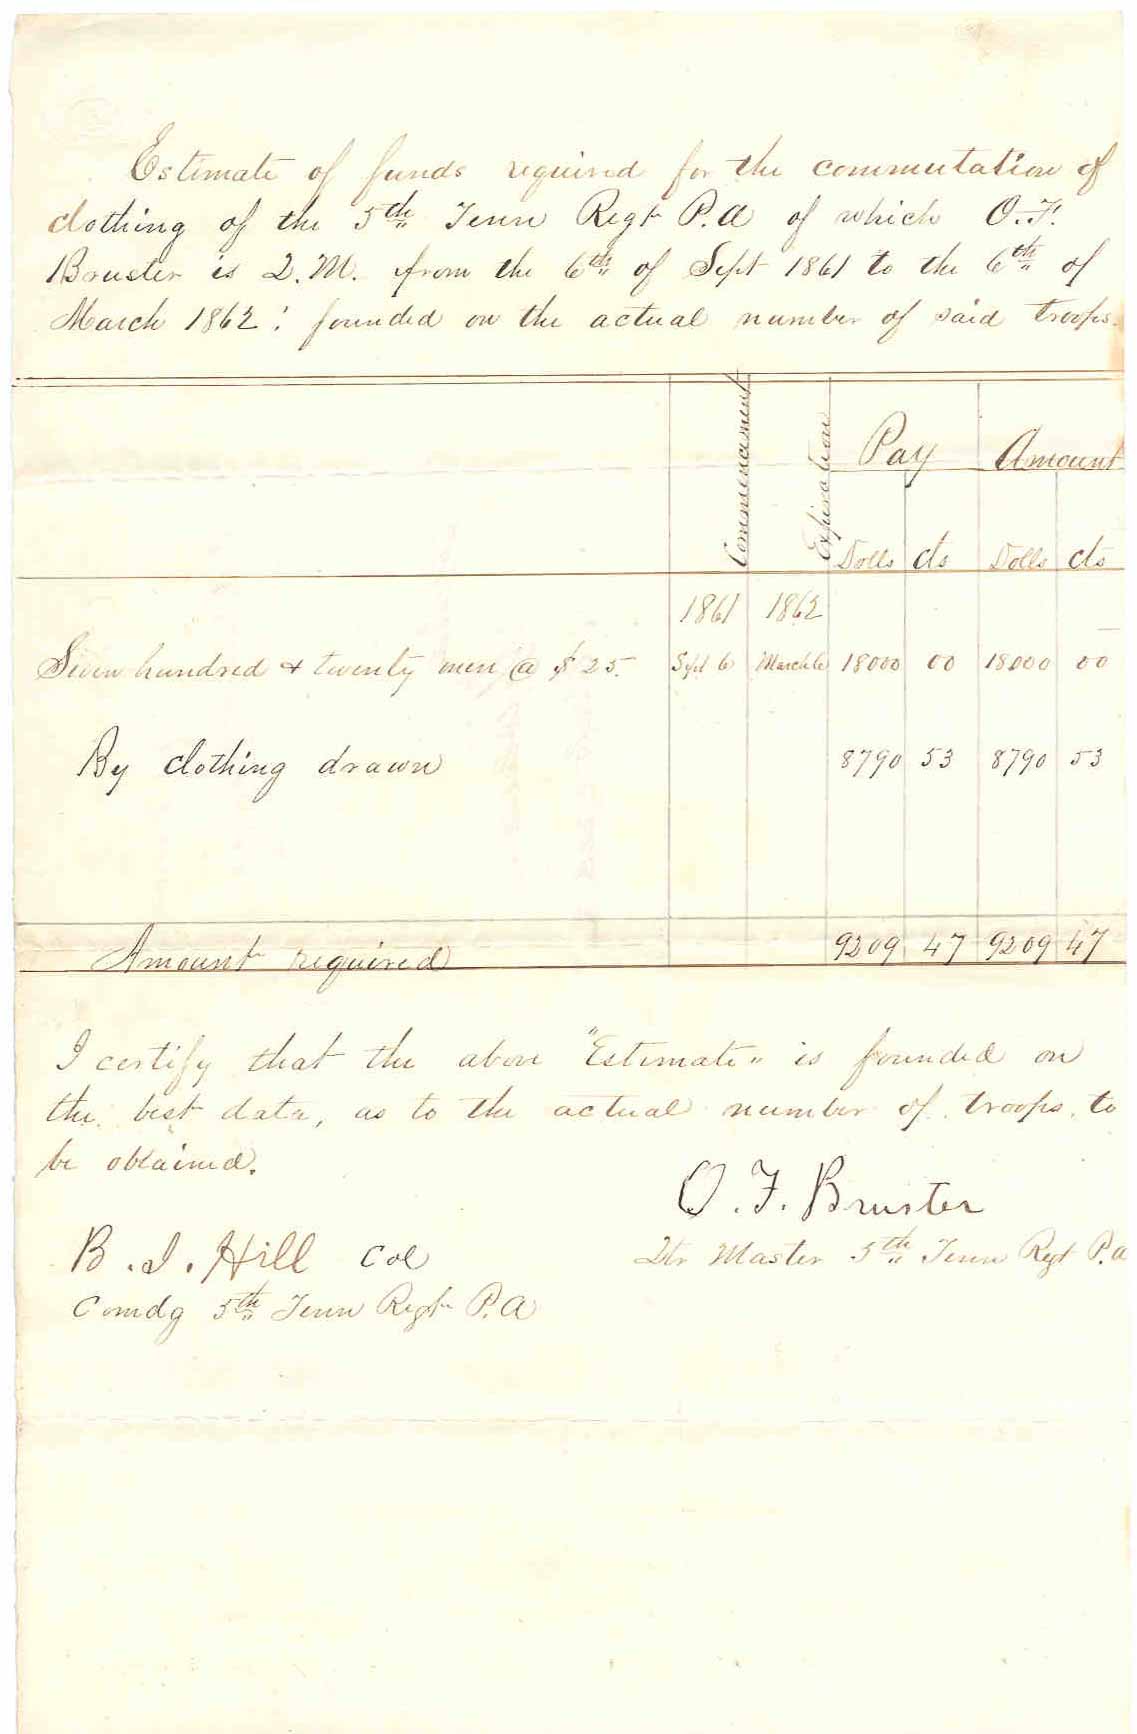 Estimate of funds required for the commutation of
clothing of the 5th Tenn Regt P.A of which O.F.
Bruster is Q.M. from the 6th of Sept 1861 to the 6th of
March 1862; founded on the actual number of said troops.
Commencement Expiration Pay Amount
Dolls cts Dolls cts
1861 1862
Seven hundred & twenty men @ $25. Sept 6 March 6 18000 00 18000 00
By clothing drawn 8790 53 8790 53
Amount required 9209 47 9209 47
I certify that the above "Estimate" is founded on
the best data, as to the actual number of troops, to
be obtained.
O. F. Bruster
Qtr Master 5th Tenn Regt P.A
B. J. Hill Col
Comdg 5th Tenn Regt P.A